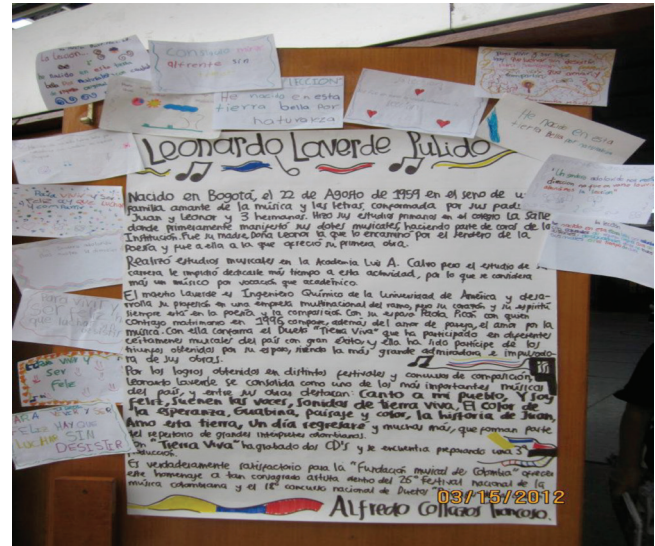 la leccion...
CONSTRUYO
al frente sin
LECCION
He nacido en esta
tierra bella por
naturaleza
He nacido en esta
tierra bella
Leonardo Laverde Pulido
Nacido en Bogotá, el 22 de Agosto de 1959 en el seno de u
familia amante de la música y las letras, conformada por sus pad
Juan y Leonor y 3 hermanas. Hizo sus estudios primarios en el colegio La Salle
donde primeramente manifestó sus dotes musicales haciendo parte de coros de la
Institución. Fue su madre, Doña Leonor la que lo encaminó por el sendero de la
Poesía y fue a ella a la que ofreció su primera obra.
Realizó estudios musicales en la Academia Luis A. Calvo pero el estudio de
carrera le impidió dedicarle más tiempo a esta actividad, por lo que se considera
más un músico por vocación que académico.
El maestro Laverde es Ingeniero Químico de la Universidad de América y desa-
rrolla su profesión en una empresa multinacional del ramo, pero su corazón y su espíritu
siempre está en la poesía y la composición. Con su esposa Paola Picón con quien
contrajo matrimonio en 1996 comparte, además del amor de pareja, el amor por la
música. Con ella conforma el Dueto "Tierra Viva" que ha participado en diferentes
certámenes musicales del país con gran éxito y ella ha sido partícipe de los
triunfos obtenidos por su esposo, siendo la más grande admiradora e impulso-
ra de sus obras.
Por los logros obtenidos en distintos festivales y concursos de composición,
Leonardo Laverde se consolida como uno de los más importantes músicos
del país, y entre sus obras destacan: Canto a mi pueblo, Y soy
feliz, Suenen las voces, Sonidos de tierra viva, El color de
la esperanza, Guabina, paisaje y color, la historia de Juan,
Amo esta tierra, Un día regresaré y muchas más, que forman parte
del repertorio de grandes intérpretes colombianos.
Con "Tierra Viva" ha grabado dos CD's y se encuentra preparando una 3ª
producción.
Es verdaderamente satisfactorio para la "Fundación musical de Colombia" ofrecer
este homenaje a tan consagrado artista dentro del 26° festival nacional de la
música colombiana y el 18° concurso nacional de Duetos
Alfredo Collazos
vivir y
ser
feliz
PARA VIVIR Y SER
FELIZ HAY QUE
LUCHAR SIN
DESISTIR
03/15/2012